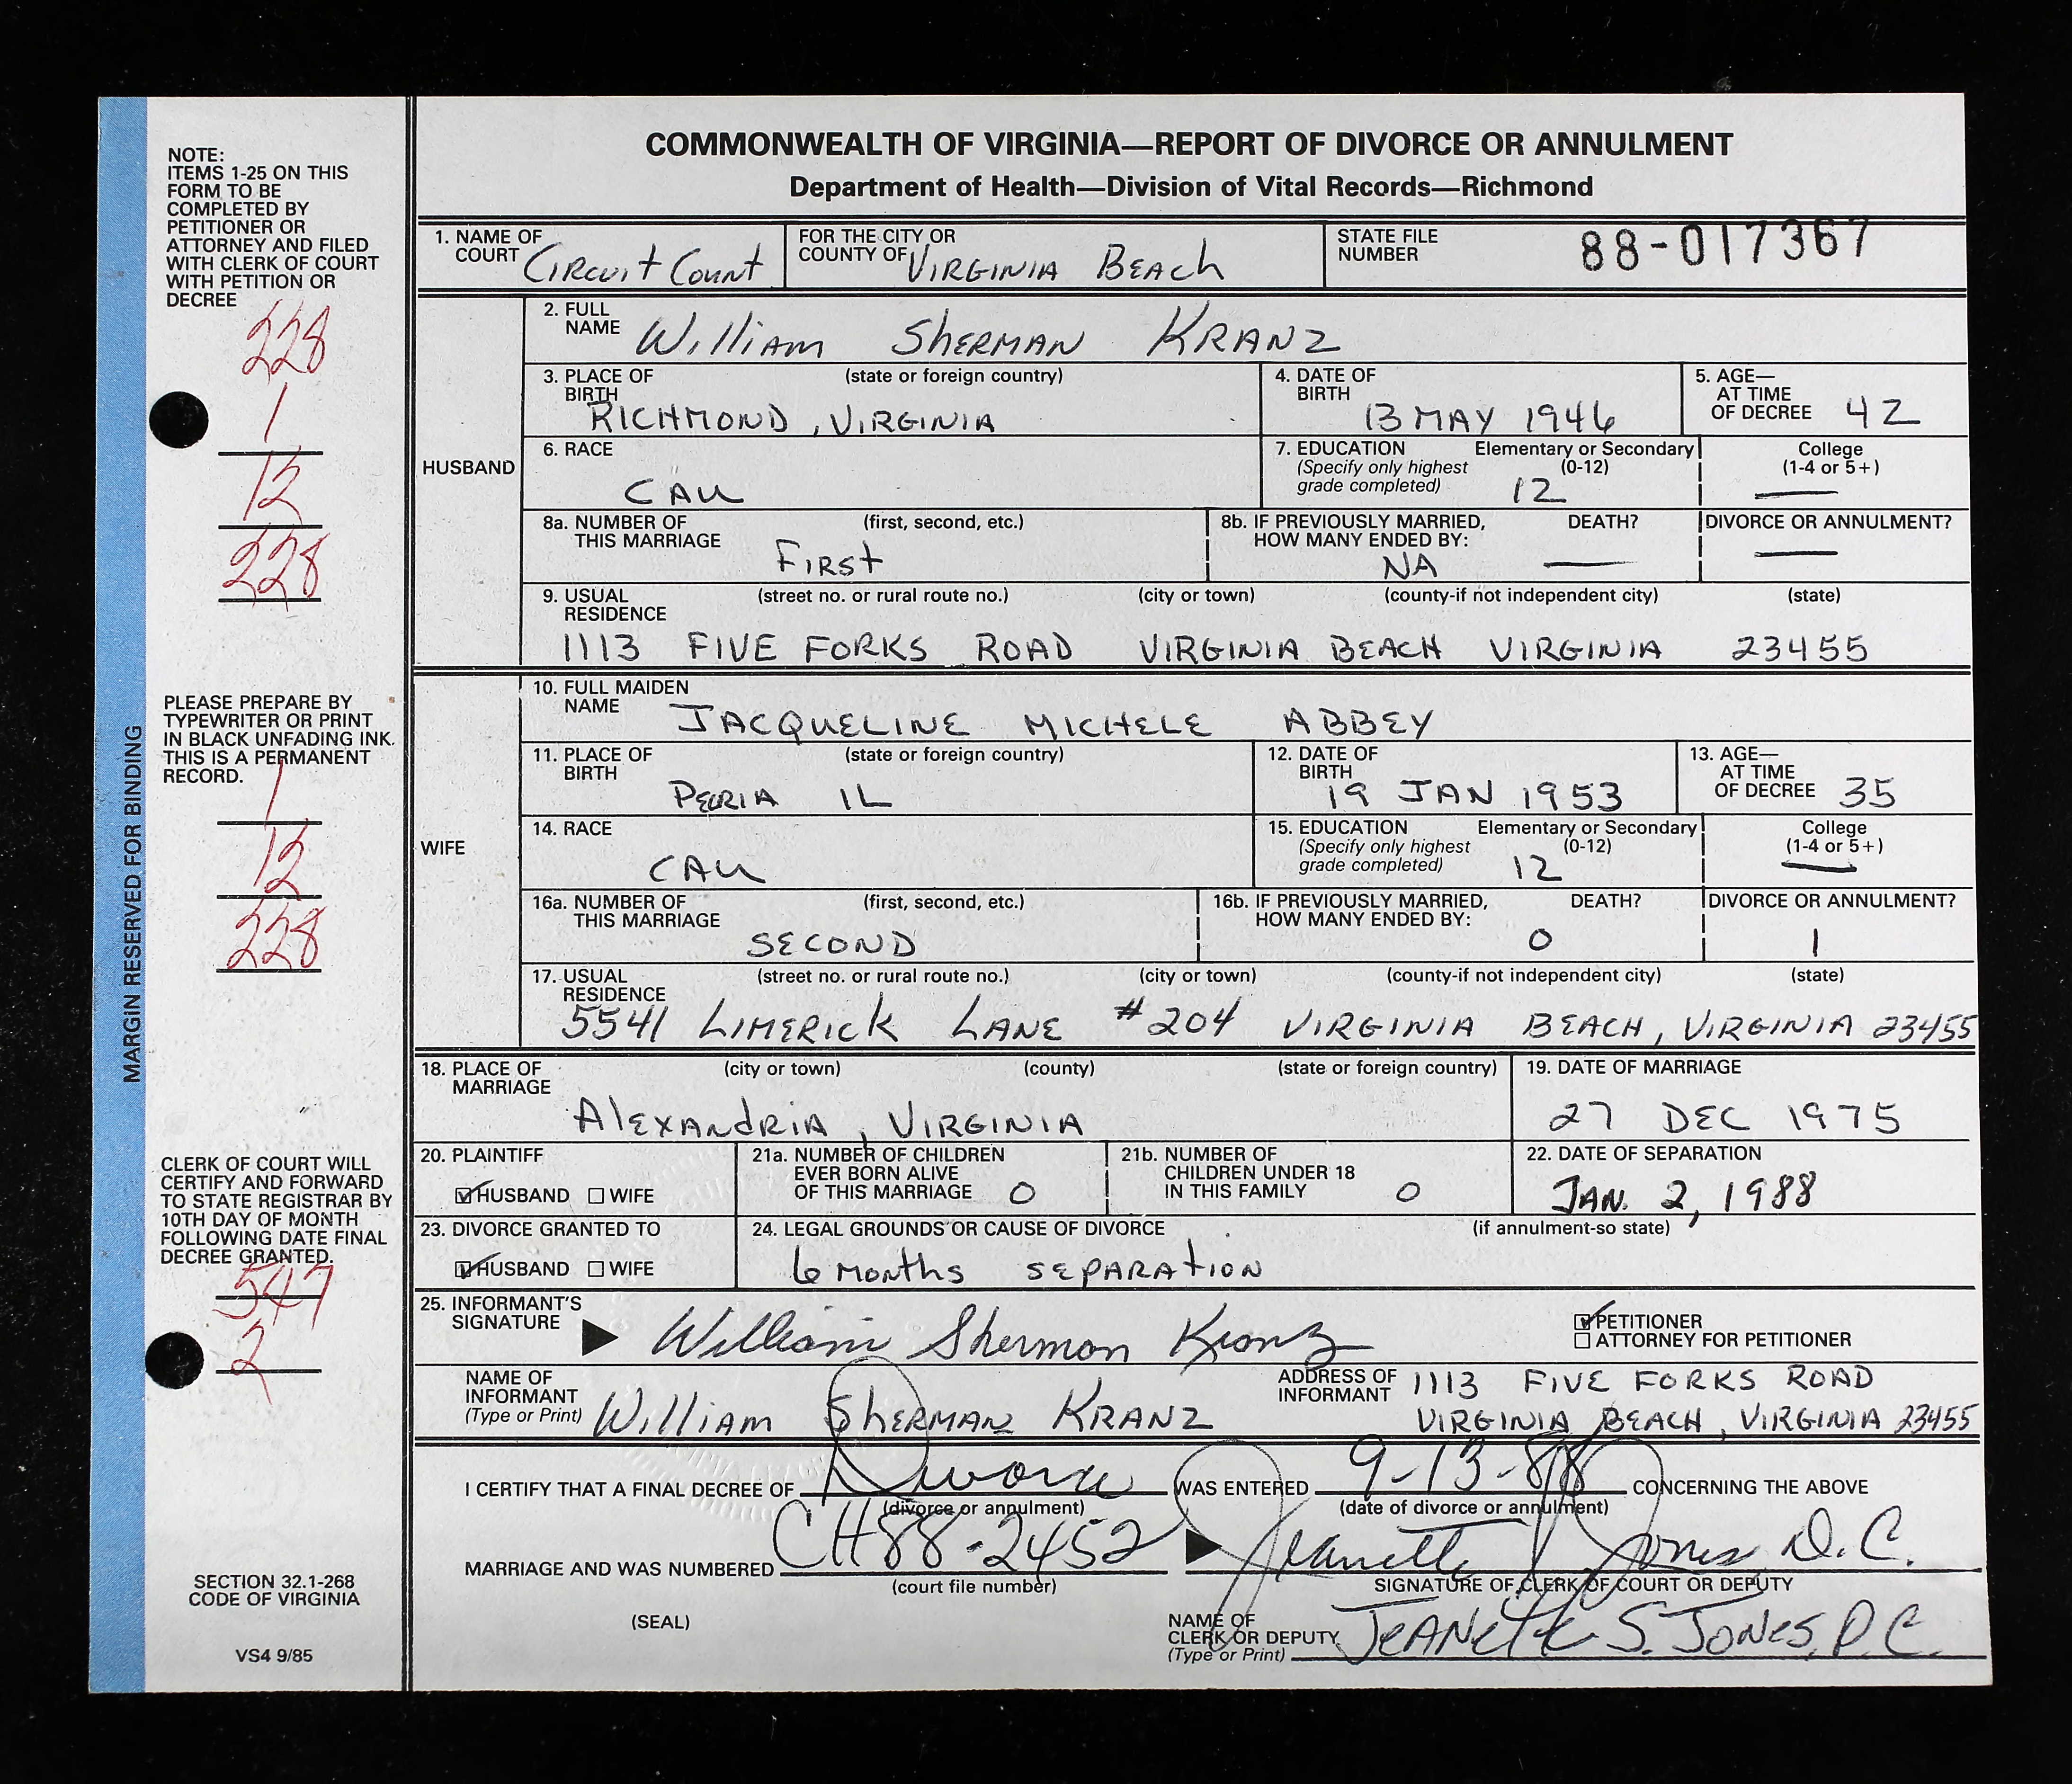 COMMONWEALTH OF VIRGINIA—REPORT OF DIVORCE OR ANNULMENT
Department of Health—Division of Vital Records—Richmond
NOTE:
ITEMS 1-25 ON THIS
FORM TO BE
COMPLETED BY
PETITIONER OR
ATTORNEY AND FILED
WITH CLERK OF COURT
WITH PETITION OR
DECREE
228
1
12
228
PLEASE PREPARE BY
TYPEWRITER OR PRINT
IN BLACK UNFADING INK.
THIS IS A PERMANENT
RECORD.
1
12
228
CLERK OF COURT WILL
CERTIFY AND FORWARD
TO STATE REGISTRAR BY
10TH DAY OF MONTH
FOLLOWING DATE FINAL
DECREE GRANTED.
547
2
SECTION 32.1-268
CODE OF VIRGINIA
VS4 9/85
MARGIN RESERVED FOR BINDING
1. NAME OF COURT Circuit Court FOR THE CITY OR COUNTY OF VIRGINIA BEACH STATE FILE NUMBER 88-017367
HUSBAND
2. FULL NAME William SHERMAN KRANZ
3. PLACE OF BIRTH (state or foreign country) RICHMOND, VIRGINIA 4. DATE OF BIRTH 13 MAY 1946 5. AGE—AT TIME OF DECREE 42
6. RACE CAU 7. EDUCATION (Specify only highest grade completed) Elementary or Secondary (0-12) 12 College (1-4 or 5+) —
8a. NUMBER OF THIS MARRIAGE (first, second, etc.) FIRST 8b. IF PREVIOUSLY MARRIED, HOW MANY ENDED BY: NA DEATH? — DIVORCE OR ANNULMENT? —
9. USUAL RESIDENCE (street no. or rural route no.) (city or town) (county-if not independent city) (state)
1113 FIVE FORKS ROAD VIRGINIA BEACH VIRGINIA 23455
WIFE
10. FULL MAIDEN NAME JACQUELINE MICHELE ABBEY
11. PLACE OF BIRTH (state or foreign country) PEORIA IL 12. DATE OF BIRTH 19 JAN 1953 13. AGE—AT TIME OF DECREE 35
14. RACE CAU 15. EDUCATION (Specify only highest grade completed) Elementary or Secondary (0-12) 12 College (1-4 or 5+) —
16a. NUMBER OF THIS MARRIAGE (first, second, etc.) SECOND 16b. IF PREVIOUSLY MARRIED, HOW MANY ENDED BY: DEATH? 0 DIVORCE OR ANNULMENT? 1
17. USUAL RESIDENCE (street no. or rural route no.) (city or town) (county-if not independent city) (state)
5541 LIMERICK LANE #204 VIRGINIA BEACH, VIRGINIA 23455
18. PLACE OF MARRIAGE (city or town) (county) (state or foreign country) Alexandria, VIRGINIA 19. DATE OF MARRIAGE 27 DEC 1975
20. PLAINTIFF ☑ HUSBAND ☐ WIFE 21a. NUMBER OF CHILDREN EVER BORN ALIVE OF THIS MARRIAGE 0 21b. NUMBER OF CHILDREN UNDER 18 IN THIS FAMILY 0 22. DATE OF SEPARATION JAN. 2, 1988
23. DIVORCE GRANTED TO ☑ HUSBAND ☐ WIFE 24. LEGAL GROUNDS OR CAUSE OF DIVORCE (if annulment-so state) 6 months SEPARATION
25. INFORMANT'S SIGNATURE William Sherman Kranz ☑ PETITIONER ☐ ATTORNEY FOR PETITIONER
NAME OF INFORMANT (Type or Print) William SHERMAN KRANZ ADDRESS OF INFORMANT 1113 FIVE FORKS ROAD
VIRGINIA BEACH, VIRGINIA 23455
I CERTIFY THAT A FINAL DECREE OF Divorce (divorce or annulment) WAS ENTERED 9-13-88 (date of divorce or annulment) CONCERNING THE ABOVE
MARRIAGE AND WAS NUMBERED CH88-2452 (court file number) Jeanette S Jones D.C.
SIGNATURE OF CLERK OF COURT OR DEPUTY
(SEAL)
NAME OF CLERK OR DEPUTY (Type or Print) JEANETTE S. JONES, D.C.